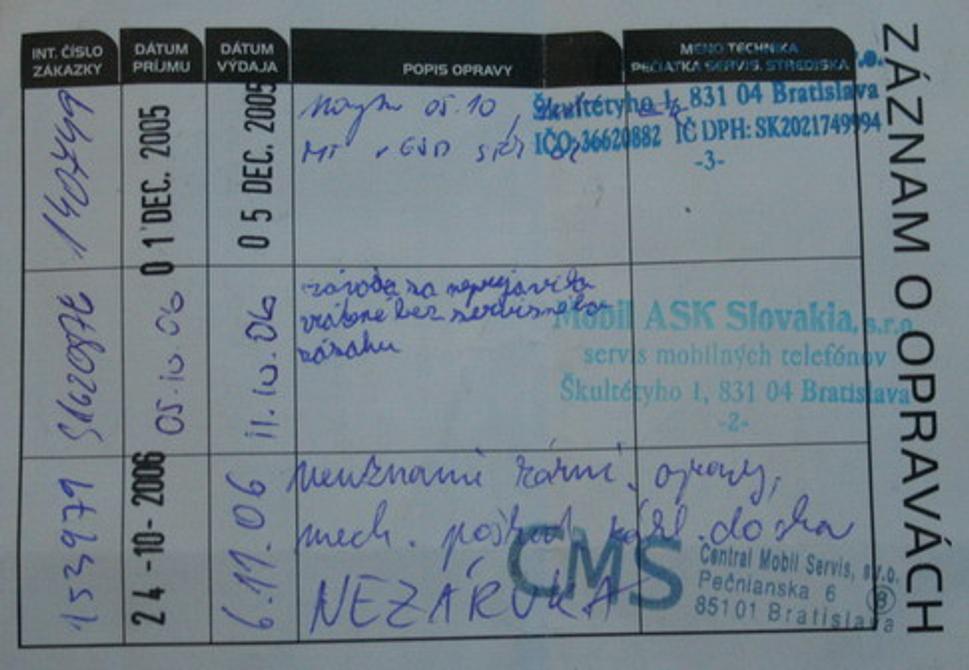 ZÁZNAM O OPRAVÁCH
INT. ČÍSLO
ZÁKAZKY
DÁTUM
PRÍJMU
DÁTUM
VÝDAJA
POPIS OPRAVY
MENO TECHNIKA
PEČIATKA SERVIS. STREDISKA
0 1 DEC. 2005
0 5 DEC. 2005
05.10
MT
Škultétyho 1, 831 04 Bratislava
IČO:36620882 IČ DPH:SK2021749994
-3-
05.10.06
11.10.06
závada sa neprejavila
vrátené bez servisného
zásahu
Mobil ASK Slovakia, s.r.o.
servis mobilných telefónov
Škultétyho 1, 831 04 Bratislava
-2-
153979
2 4 -10- 2006
6.11.06
opravy,
mech. doska
NEZÁRUKA
CMS
Central Mobil Servis, s.r.o.
Pečnianska 6
851 01 Bratislava
8